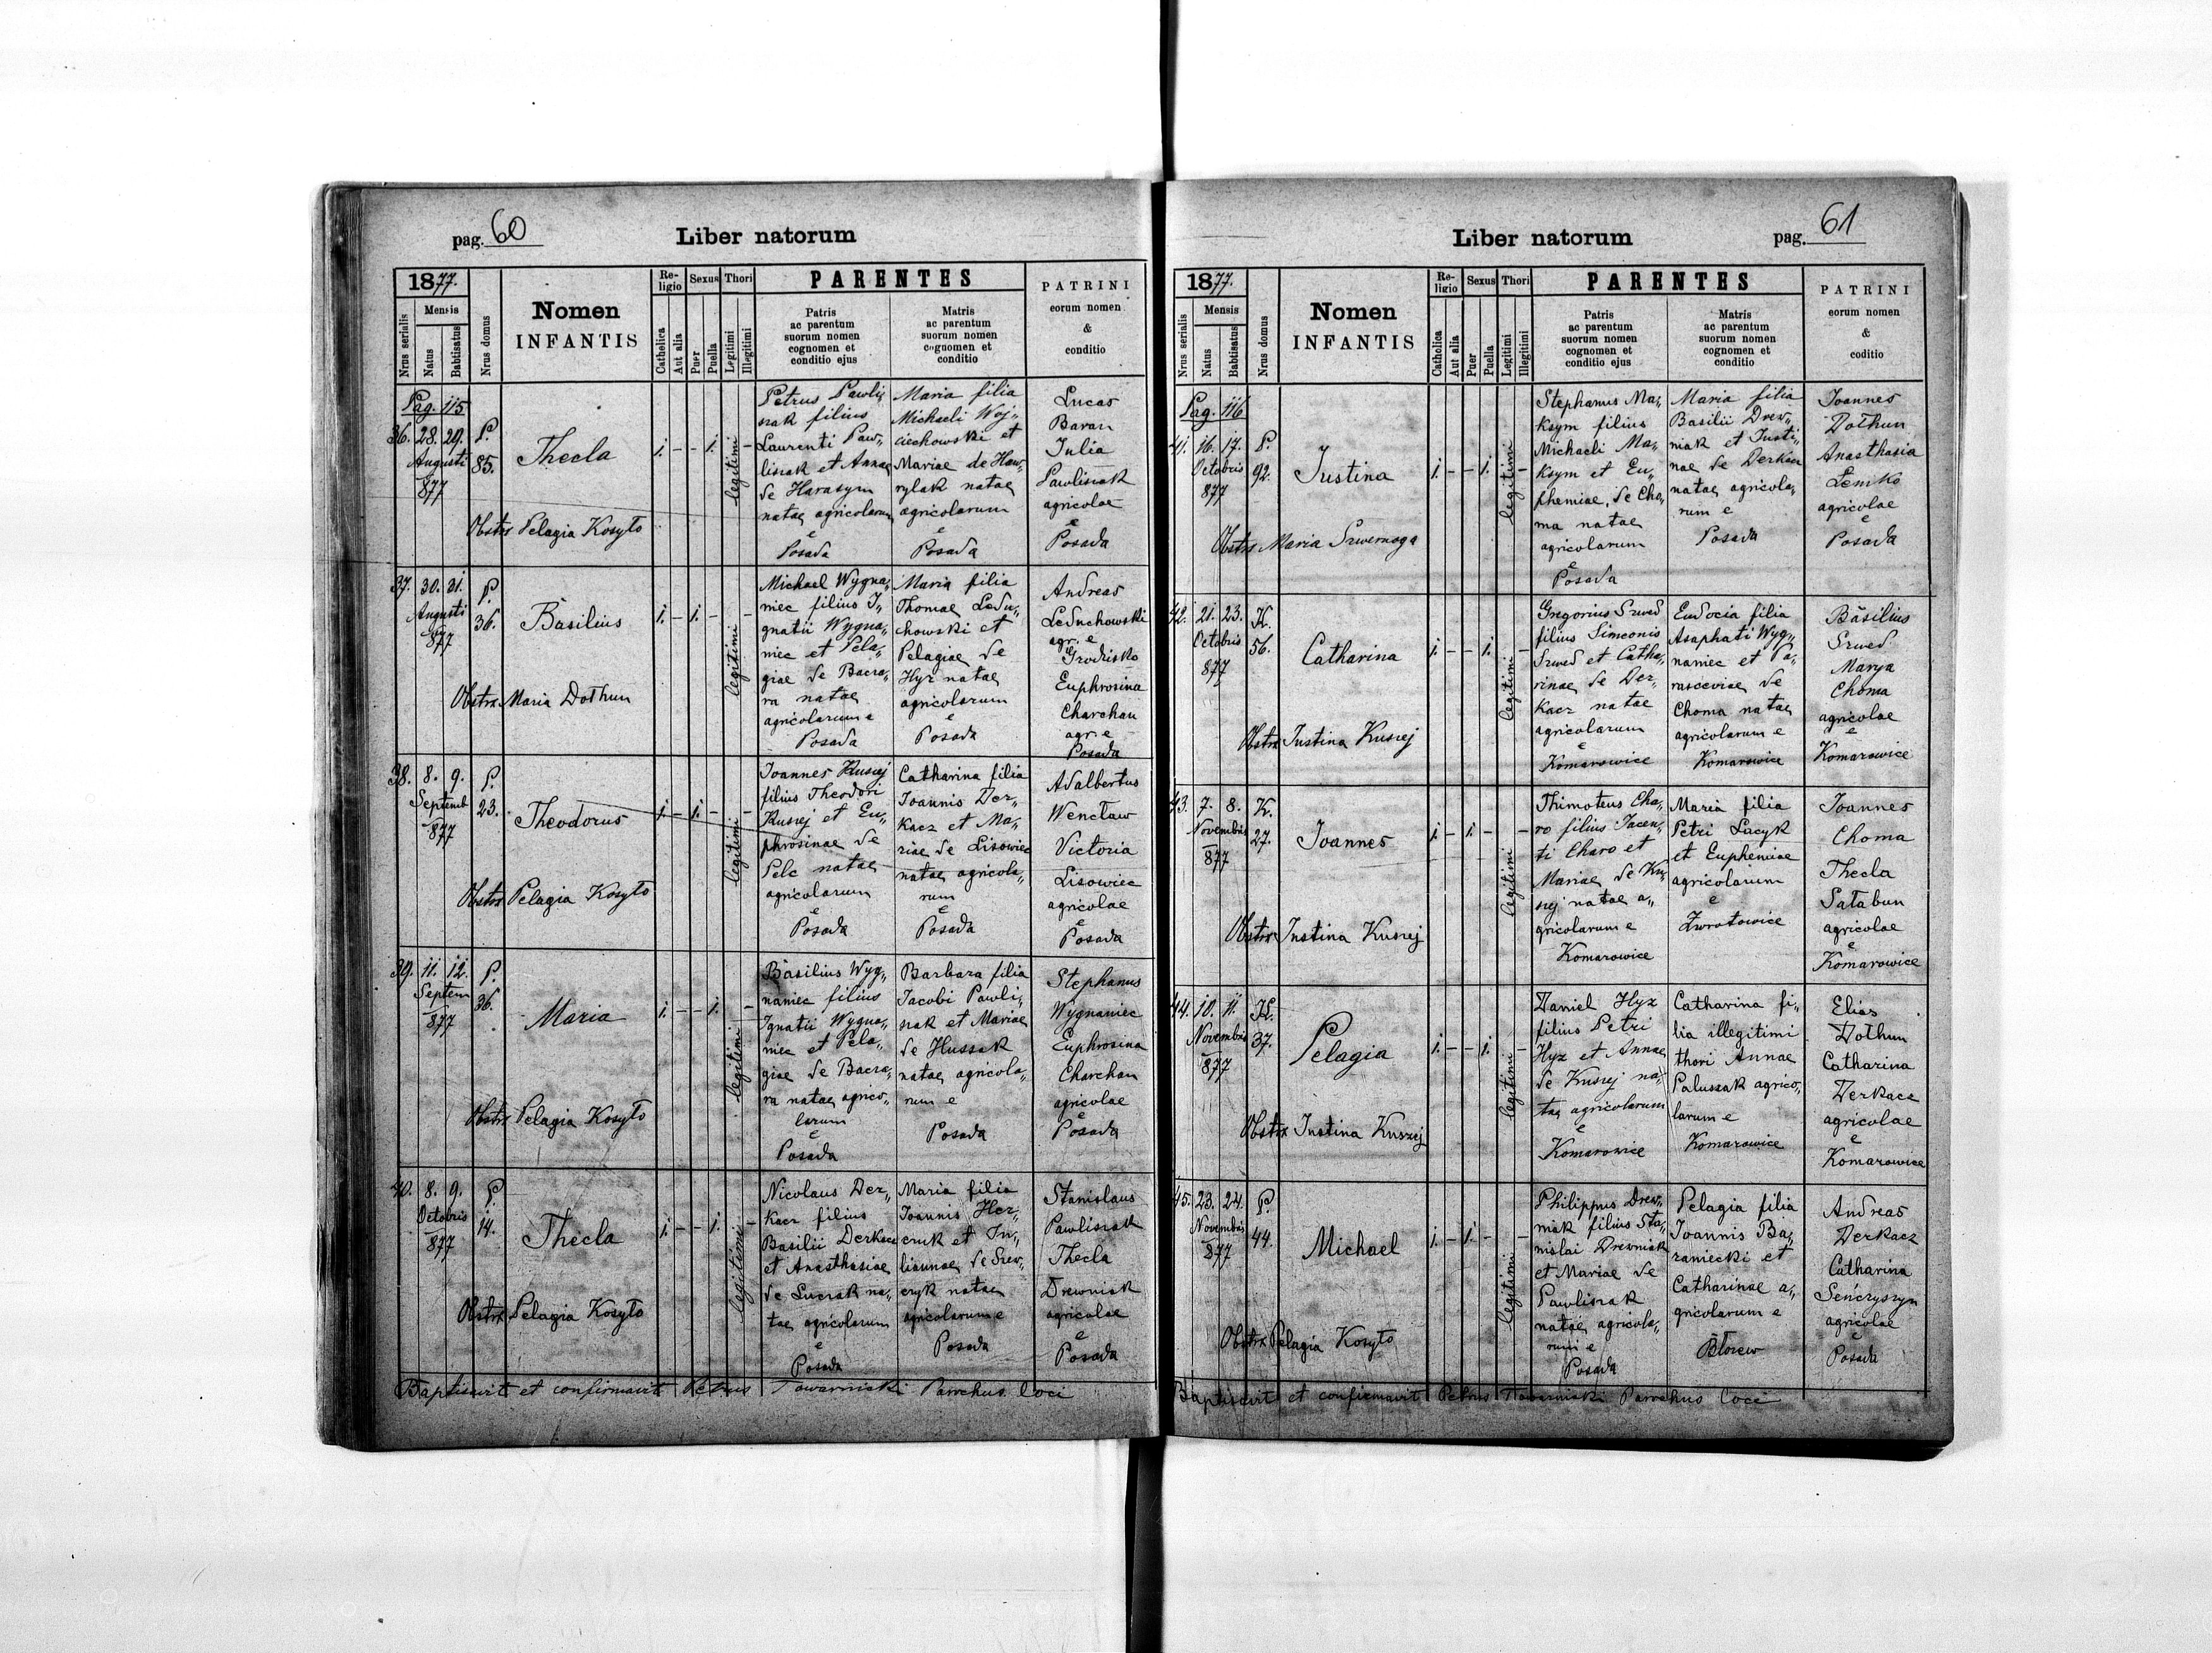 pag. 60
Liber natorum
1877.
Nrus serialis
Mensis
Natus
Babtisatus
Nrus domus
Nomen
INFANTIS
Re-
ligio
Catholica
Aut alia
Sexus
Puer
Puella
Thori
Legitimi
Illegitimi
PARENTES
Patris
ac parentum
suorum nomen
cognomen et
conditio ejus
Matris
ac parentum
suorum nomen
cognomen et
conditio
PATRINI
eorum nomen
&
conditio
Pag. 115
36. 28. 29.
Augusti
877
P.
85.
Thecla
1. - - 1. -
legitimi
Petrus Pawli„
szak filius
Laurenti Paw„
liszak et Annae
de Harasym
natae agricolarum
e
Posada
Maria filia
Michaeli Woj„
ciechowski et
Mariae de Haw„
rylak natae
agricolarum
e
Posada
Lucas
Baran
Julia
Pawliszak
agricolae
e
Posada
Obstrx Pelagia Kosyło
37. 30. 31.
Augusti
877
P.
36.
Basilius
1. - 1. - -
legitimi
Michael Wygna„
niec filius I„
gnatii Wygna„
niec et Pela„
giae de Bacza„
ra natae
agricolarum e
Posada
Maria filia
Thomae Ledu„
chowski et
Pelagiae de
Hyz natae
agricolarum
e
Posada
Andreas
Leduchowski
agr. e
Grodzisko
Euphrosina
Charchan
agr. e
Posada
Obstrx Maria Dothun
38. 8. 9.
Septemb
877
P.
23.
Theodorus
1. - 1. - -
legitimi
Joannes Kuszej
filius Theodori
Kuszej et Eu„
phrosinae de
Pelc natae
agricolarum
e
Posada
Catharina filia
Joannis Der„
kacz et Ma„
riae de Lisowiec
natae agricola„
rum
e
Posada
Adalbertus
Wencław
Victoria
Lisowiec
agricolae
e
Posada
Obstrx Pelagia Kosyło
39. 11. 12.
Septem
877
P.
36.
Maria
1. - - 1. -
legitimi
Basilius Wyg„
naniec filius
Ignatii Wygna„
niec et Pela„
giae de Bacza„
ra natae agrico„
larum
e
Posada
Barbara filia
Jacobi Pawli„
szak et Mariae
de Hussak
natae agricola„
rum e
Posada
Stephanus
Wygnaniec
Euphrosina
Charchan
agricolae
e
Posada
Obstrx Pelagia Kosyło
40. 8. 9.
Octobris
877
P.
14.
Thecla
1. - - 1. -
legitimi
Nicolaus Der„
kacz filius
Basilii Derkacz
et Anasthasiae
de Luczak na„
tae agricolarum
e
Posada
Maria filia
Joannis Her„
czuk et Ju„
liannae de
natae
agricolarum e
Posada
Stanislaus
Pawliszak
Thecla
Drewniak
agricolae
e
Posada
Obstrx Pelagia Kosyło
Baptisavit et confirmavit Petrus Towarnicki Parochus loci
Liber natorum
pag. 61
1877.
Nrus serialis
Mensis
Natus
Babtisatus
Nrus domus
Nomen
INFANTIS
Re-
ligio
Catholica
Aut alia
Sexus
Puer
Puella
Thori
Legitimi
Illegitimi
PARENTES
Patris
ac parentum
suorum nomen
cognomen et
conditio ejus
Matris
ac parentum
suorum nomen
cognomen et
conditio
PATRINI
eorum nomen
&
coditio
Pag. 116
41. 16. 17.
Octobris
877
P.
92.
Justina
1. - - 1. -
legitimi
Stephanus Ma„
ksym filius
Michaeli Ma„
ksym et Eu„
phemiae de Cho„
ma natae
agricolarum
e
Posada
Maria filia
Basilii Drew„
niak et Justi„
nae de Derkacz
natae agricola„
rum e
Posada
Joannes
Dothun
Anasthasia
Lemko
agricolae
e
Posada
Obstrx Maria Szwernoga
42. 21. 23.
Octobris
877
K.
56.
Catharina
1. - - 1. -
legitimi
Gregorius Szwed
filius Simeonis
Szwed et Catha„
rinae de Der„
kacz natae
agricolarum
e
Komarowice
Eudocia filia
Asaphati Wyg„
naniec et Pa„
rasceviae de
Choma natae
agricolarum e
Komarowice
Basilius
Szwed
Marya
Choma
agricolae
e
Komarowice
Obstrx Justina Kuszej
43. 7. 8.
Novembris
877
K.
27.
Joannes
1. - 1. - -
legitimi
Thimoteus Cha„
ro filius Jacen„
ti Charo et
Mariae de Ku„
szej natae a„
gricolarum e
Komarowice
Maria filia
Petri Lacyk
et Euphemiae
agricolarum
e
Zwrotowice
Joannes
Choma
Thecla
Satabun
agricolae
e
Komarowice
Obstrx Justina Kuszej
44. 10. 11.
Novembris
877
K.
37.
Pelagia
1. - - 1. -
legitimi
Daniel Hyz
filius Petri
Hyz et Annae
de Kuszej na„
tae agricolarum
e
Komarowice
Catharina fi„
lia illegitimi
thori Annae
Paluszak agrico„
larum e
Komarowice
Elias
Dothun
Catharina
Derkacz
agricolae
e
Komarowice
Obstrx Justina Kuszej
45. 23. 24.
Novembris
877
P.
44.
Michael
1. - 1. - -
legitimi
Philippus Drew„
niak filius Sta„
nislai Drewniak
et Mariae de
Pawliszak
natae agricola„
rum e
Posada
Pelagia filia
Joannis Ba„
raniecki et
Catharinae a„
gricolarum e
Błozew
Andreas
Derkacz
Catharina
Senczyszyn
agricolae
e
Posada
Obstrx Pelagia Kosyło
Baptisavit et confirmavit Petrus Towarnicki Parochus loci